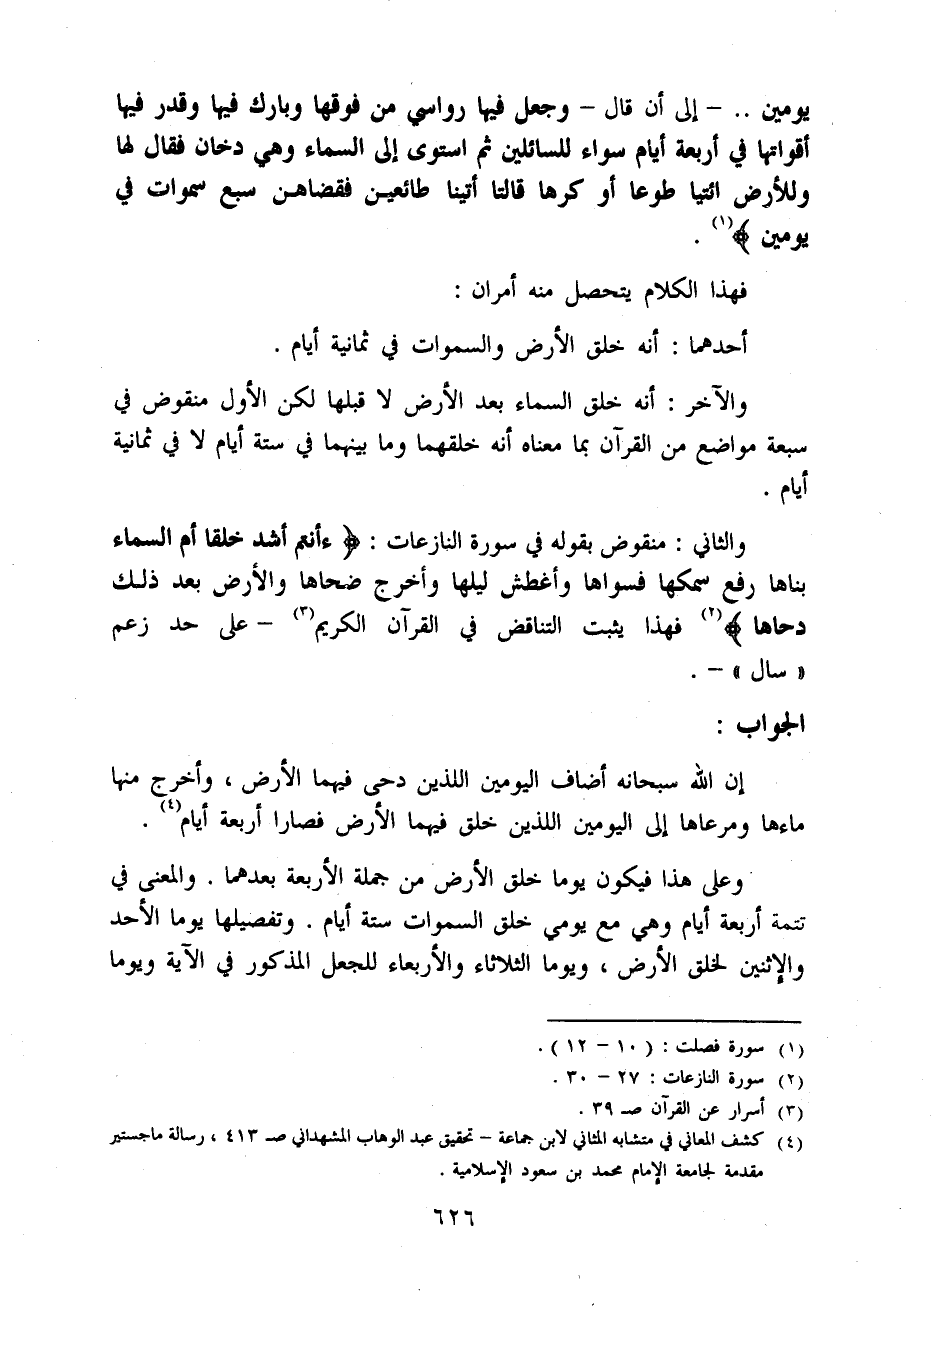 يومين .. – إلى أن قال – وجعل فيها رواسي من فوقها وبارك فيها وقدر فيها
أقواتها في أربعة أيام سواء للسائلين ثم استوى إلى السماء وهي دخان فقال لها
وللأرض ائتيا طوعا أو كرها قالتا أتينا طائعين فقضاهن سبع سموات في
يومين ﴾(١) .
فهذا الكلام يتحصل منه أمران :
أحدهما : أنه خلق الأرض والسموات في ثمانية أيام .
والآخر : أنه خلق السماء بعد الأرض لا قبلها لكن الأول منقوض في
سبعة مواضع من القرآن بما معناه أنه خلقهما وما بينهما في ستة أيام لا في ثمانية
أيام .
والثاني : منقوض بقوله في سورة النازعات : ﴿ ءأنتم أشد خلقا أم السماء
بناها رفع سمكها فسواها وأغطش ليلها وأخرج ضحاها والأرض بعد ذلك
دحاها ﴾(٢) فهذا يثبت التناقض في القرآن الكريم(٣) – على حد زعم
« سال » – .
الجواب :
إن الله سبحانه أضاف اليومين اللذين دحى فيهما الأرض ، وأخرج منها
ماءها ومرعاها إلى اليومين اللذين خلق فيهما الأرض فصارا أربعة أيام(٤) .
وعلى هذا فيكون يوما خلق الأرض من جملة الأربعة بعدهما . والمعنى في
تتمة أربعة أيام وهي مع يومي خلق السموات ستة أيام . وتفصيلها يوما الأحد
والإثنين لخلق الأرض ، ويوما الثلاثاء والأربعاء للجعل المذكور في الآية ويوما
(١) سورة فصلت : ( ١٠ – ١٢ ) .
(٢) سورة النازعات : ٢٧ – ٣٠ .
(٣) أسرار عن القرآن صـ ٣٩ .
(٤) كشف المعاني في متشابه المثاني لابن جماعة – تحقيق عبد الوهاب المشهداني صـ ٤١٣ ، رسالة ماجستير
مقدمة لجامعة الإمام محمد بن سعود الإسلامية .
٦٢٦